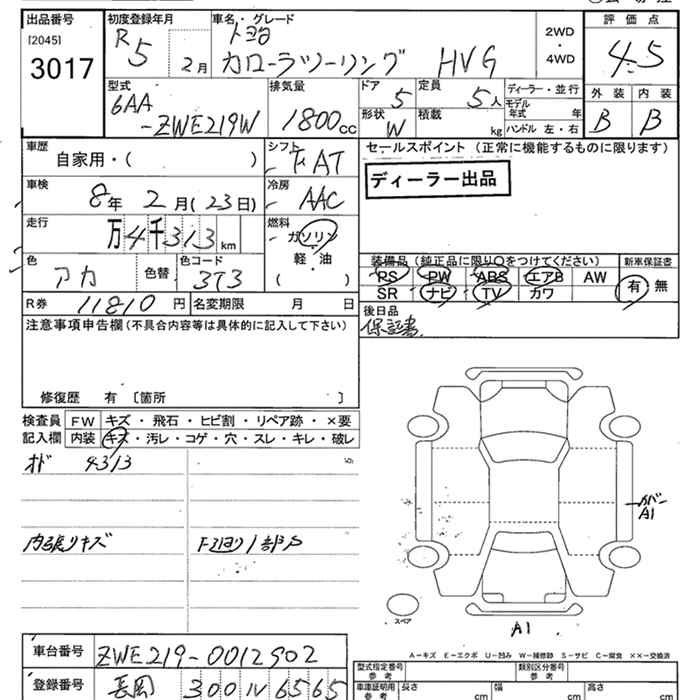 出品番号
[2045]
3017
初度登録年月
R5 2月
車名・グレード
トヨタ
カローラツーリング HVG
2WD
・
4WD
評価点
4.5
外装 内装
B B
型式
6AA
-ZWE219W
排気量
1800cc
ドア 5
定員 5人
ディーラー・並行
形状 W
積載 kg
モデル年式 年
ハンドル 左・右
車歴
自家用・( )
シフト AT
セールスポイント(正常に機能するものに限ります)
ディーラー出品
車検
8年 2月(23日)
冷房
AAC
走行
万4千313km
燃料
ガソリン
軽・油
( )
色
アカ
色替
色コード
3T3
装備品(純正品に限り○をつけてください)
新車保証書
PS PW ABS エアB AW
SR ナビ TV カワ
有 無
R券 11810円
名変期限 月 日
後日品
保証書
注意事項申告欄(不具合内容等は具体的に記入して下さい)
修復歴 有 〔箇所 〕
検査員
記入欄
FW キズ・飛石・ヒビ割・リペア跡・×要
内装 キズ・汚レ・コゲ・穴・スレ・キレ・破レ
オド 4313
内張りキズ
カバー
A1
スペア
A1
A−キズ E−エクボ U−凹み W−補修跡 S−サビ C−腐食 ××−交換済
車台番号 ZWE219-0012902
登録番号 長岡 300 6565
型式指定番号
参考
類別区分番号
参考
車庫証明用
参考
長さ cm
幅 cm
高さ cm